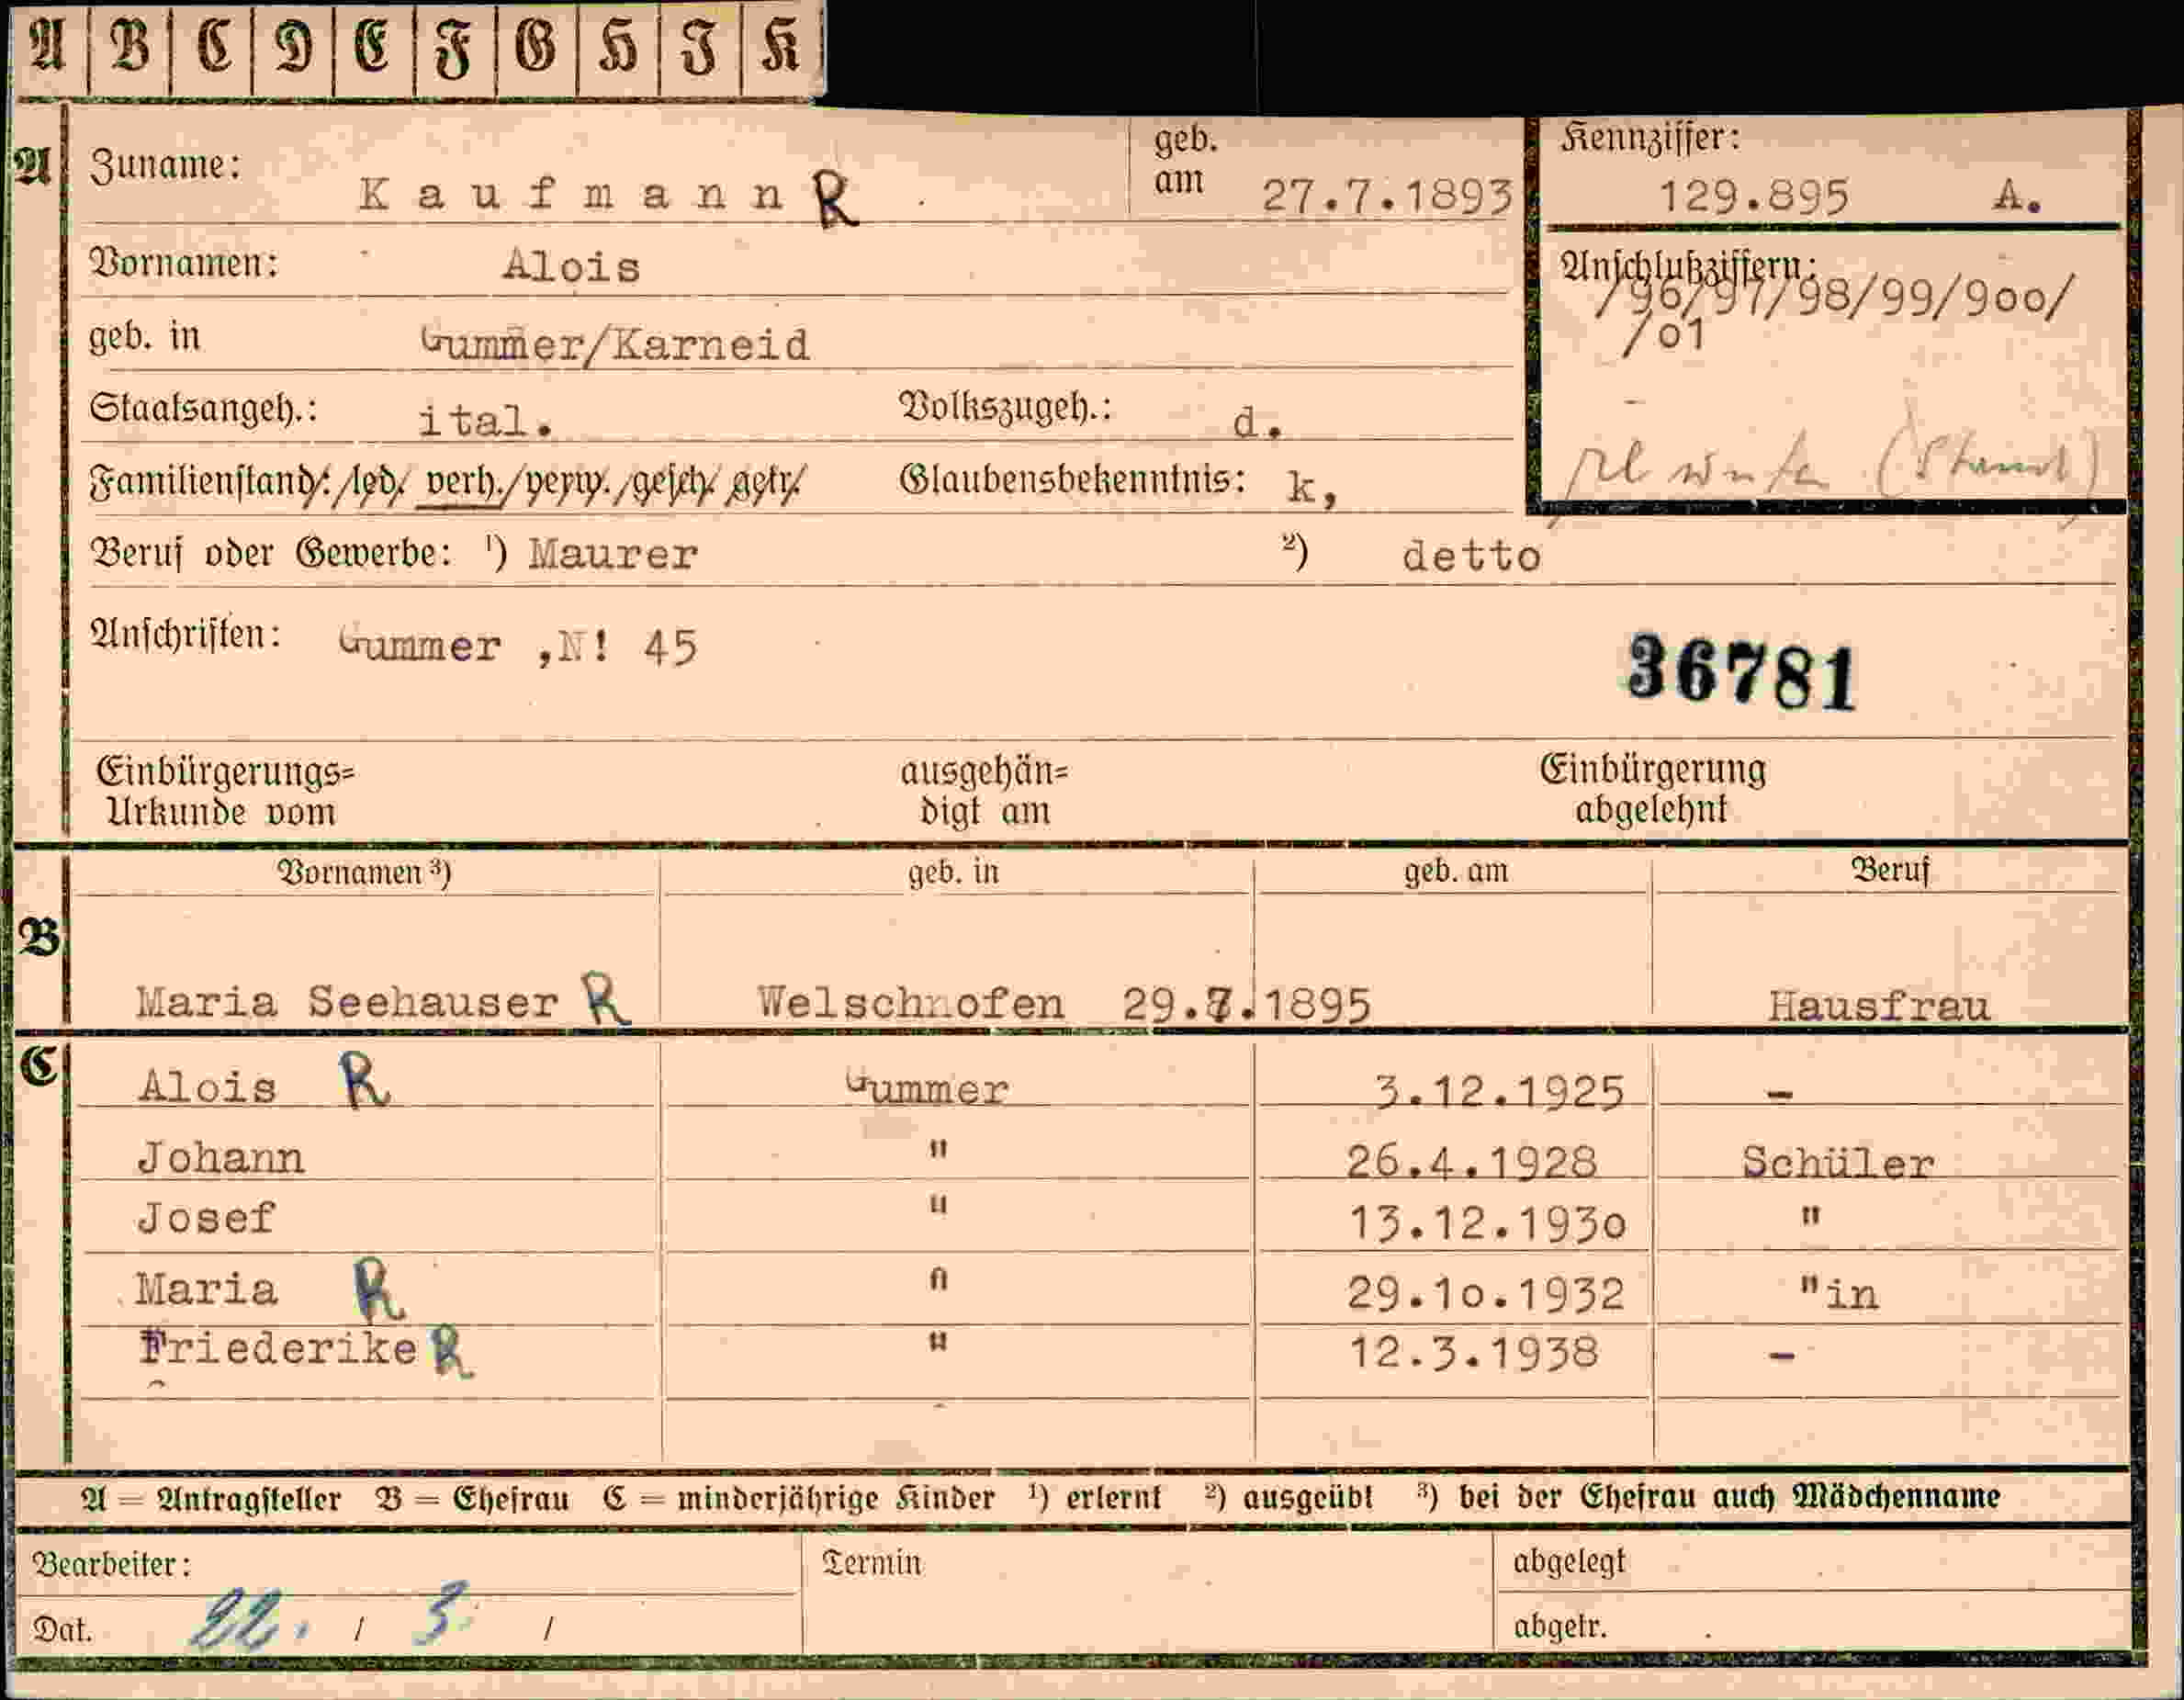 A B C D E F G H I K
A Zuname: Kaufmann R geb. am 27.7.1893 Kennziffer: 129.895 A.
Vornamen: Alois Anschlußziffern: /96/97/98/99/900/
/01
geb. in Gummer/Karneid
Staatsangeh.: ital. Volkszugeh.: d.
Familienstand: led. verh. verw. gesch. getr. Glaubensbekenntnis: k,
Beruf oder Gewerbe: ¹) Maurer ²) detto
Anschriften: Gummer ,N! 45
36781
Einbürgerungs= ausgehän= Einbürgerung
Urkunde vom digt am abgelehnt
Vornamen ³) geb. in geb. am Beruf
B
Maria Seehauser R Welschnofen 29.7.1895 Hausfrau
C Alois R Gummer 3.12.1925 -
Johann " 26.4.1928 Schüler
Josef " 13.12.1930 "
Maria R " 29.10.1932 "in
Friederike R " 12.3.1938 -
A = Antragsteller B = Ehefrau C = minderjährige Kinder ¹) erlernt ²) ausgeübt ³) bei der Ehefrau auch Mädchenname
Bearbeiter: Termin abgelegt
Dat. 22. / 3 / abgetr.